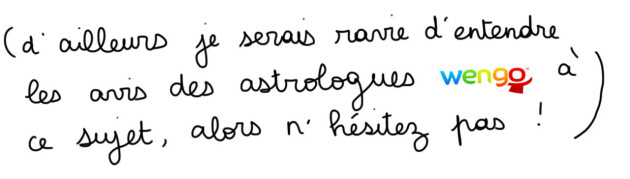 (d'ailleurs je serais ravie d'entendre
les avis des astrologues wengo à
ce sujet, alors n'hésitez pas !)